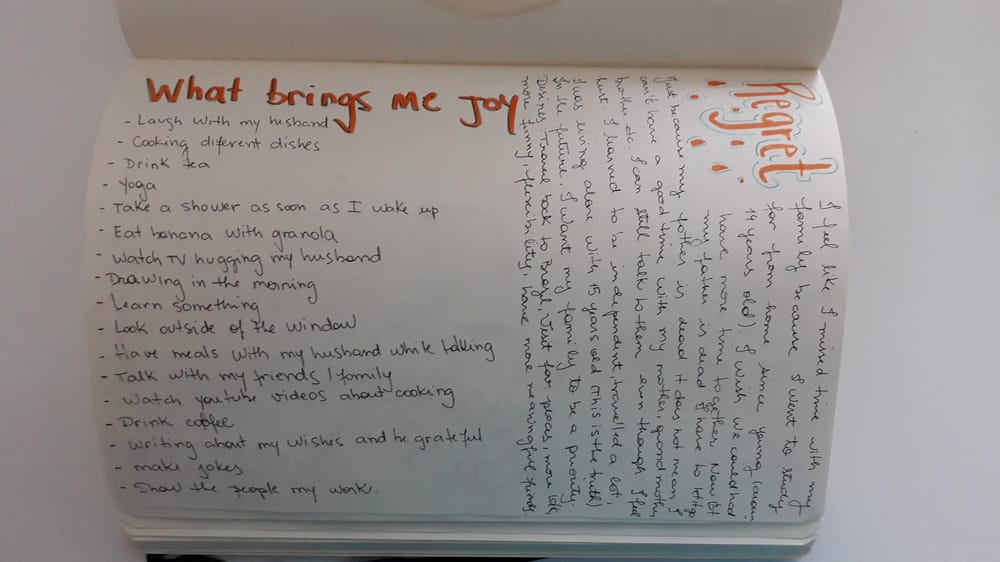 What brings me Joy
- Laugh with my husband
- Cooking diferent dishes
- Drink tea
- Yoga
- Take a shower as soon as I wake up
- Eat banana with granola
- Watch TV hugging my husband
- Drawing in the morning
- Learn something
- Look outside of the window
- Have meals with my husband while talking
- Talk with my friends / family
- Watch youtube videos about cooking
- Drink coffee
- Writing about my wishes and be grateful
- make jokes
- Show the people my work.
Regret
I feel like I missed time with my
family because I went to study
far from home since young
14 years old). I wish we could had
have more time together. Now
my father is dead I have to let go
Just because my father is dead it does not mean I
can't have a good time with my mother, grandmother,
brother etc. I can still talk to them even though I feel
hurt. I learned to be independent, travelled a lot,
I was living alone with 15 years old (This is the truth)
In the future, I want my family to be a priority.
Desires: Travel back to Brazil, Visit far places, more talk,
more funny, flexibility, have more meaningful